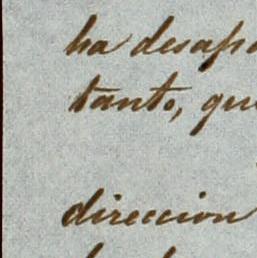 ha desapa
tanto, que
direccion